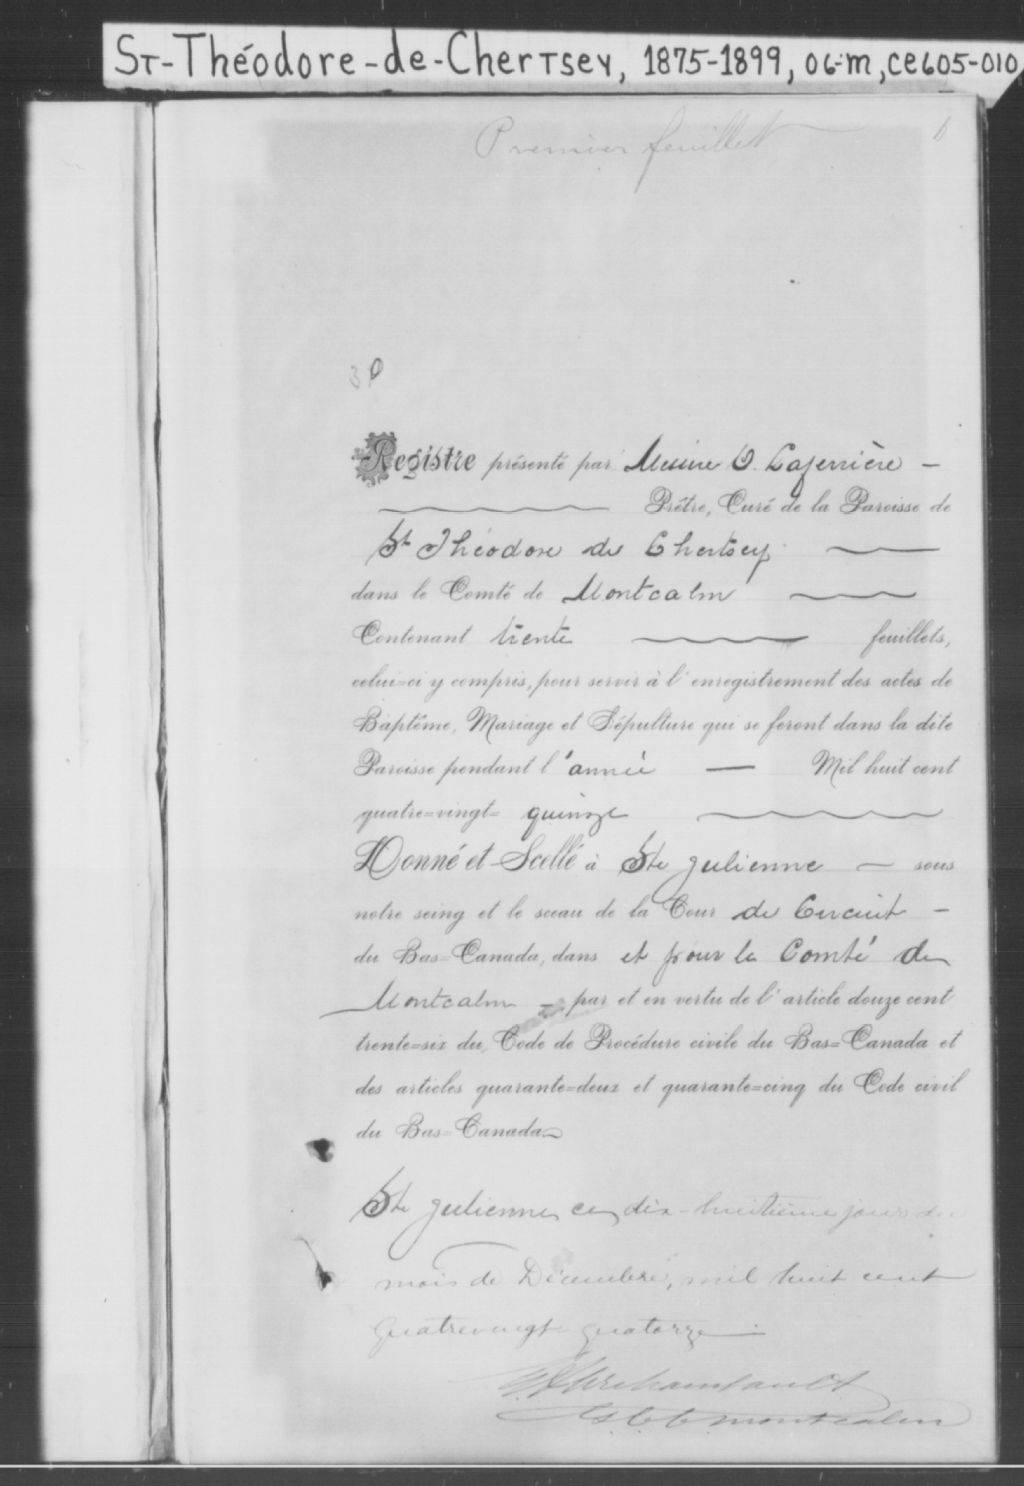 ST-Théodore-de-Chertsey, 1875-1899, 06-m, CE605-010
Premier feuillet
Registre présenté par Messire O. Laferrière –
Prêtre, Curé de la Paroisse de
St Théodore de Chertsey
dans le Comté de Montcalm
Contenant trente feuillets,
celui=ci y compris, pour servir à l'enregistrement des actes de
Baptême, Mariage et Sépulture qui se feront dans la dite
Paroisse pendant l'année — Mil huit cent
quatre=vingt= quinze
Donné et Scellé à Ste Julienne — sous
notre seing et le sceau de la Cour de Circuit –
du Bas=Canada, dans et pour le Comté de
Montcalm – par et en vertu de l'article douze cent
trente=six du Code de Procédure civile du Bas=Canada et
des articles quarante=deux et quarante=cinq du Code civil
du Bas=Canada
Ste Julienne ce dix-huitième jour du
mois de Décembre, mil huit cent
quatrevingt quatorze
Archambault
C. C. Montcalm